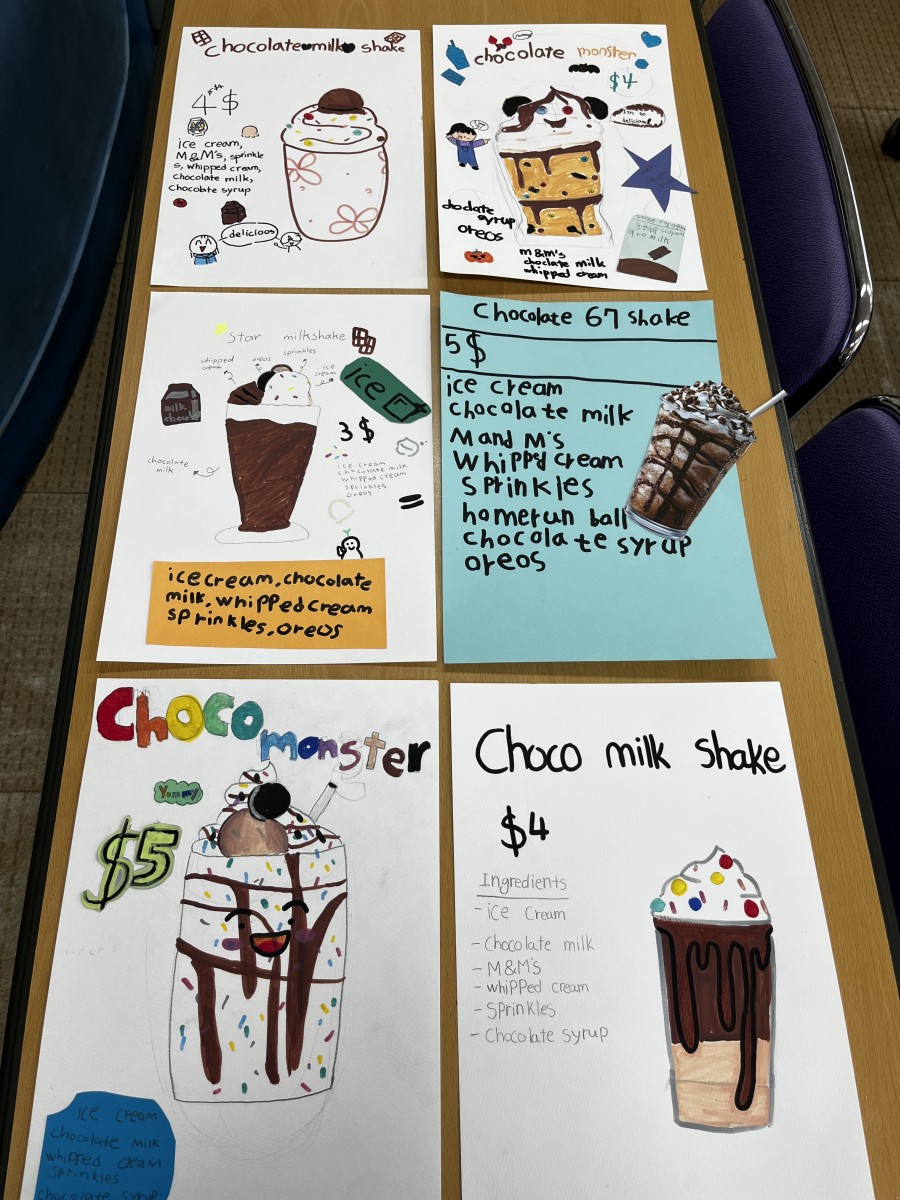 Chocolate milk shake
4$
ice cream,
M&M's, sprinkle
s, whipped cream,
chocolate milk,
chocolate syrup
delicioos
Yummy
chocolate monster
$4
I'm so
delicious!
chodate
syrup
oreos
M&M's
choclate milk
whipped cream
Star milkshake
whipped
cream
oreos
sprinkles
ice
cream
ice
milk
choco
3$
chocolate
milk
ice cream
chocolate milk
whipped cream
sprinkles
oreos
icecream, chocolate
milk, whippedcream
sprinkles, oreos
Chocolate 67 shake
5$
ice cream
chocolate milk
M and M's
Whipped cream
sprinkles
homerun ball
chocolate syrup
oreos
Choco
monster
Yummy
$5
ice cream
chocolate milk
whipped cream
sprinkles
chocolate syrup
Choco milk shake
$4
Ingredients
- ice cream
- Chocolate milk
- M&M's
- whipped cream
- sprinkles
- Chocolate syrup